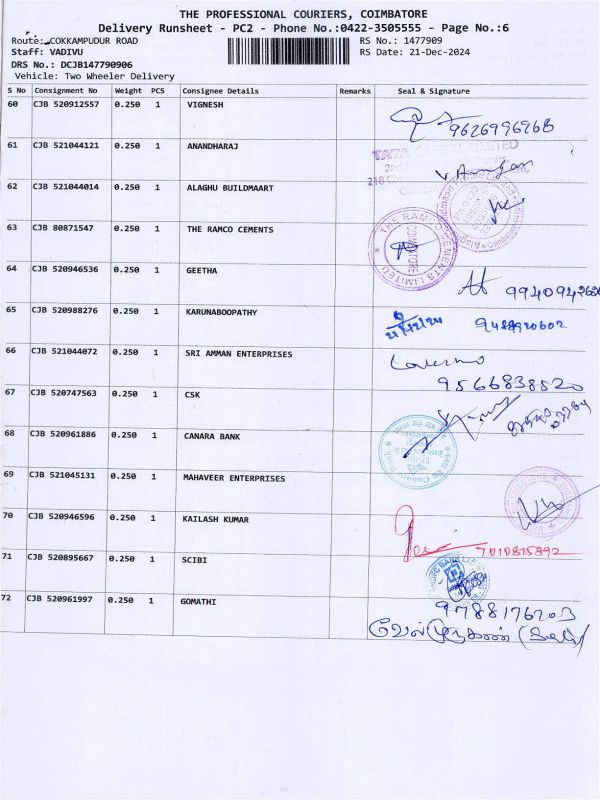 THE PROFESSIONAL COURIERS, COIMBATORE
Delivery Runsheet - PC2 - Phone No.:0422-3505555 - Page No.:6
Route: COKKAMPUDUR ROAD RS No.: 1477909
Staff: VADIVU RS Date: 21-Dec-2024
DRS No.: DCJB147790906
Vehicle: Two Wheeler Delivery
S No Consignment No Weight PCS Consignee Details Remarks Seal & Signature
60 CJB 520912557 0.250 1 VIGNESH
9626996968
61 CJB 521044121 0.250 1 ANANDHARAJ
TATA CAPITAL LIMITED
62 CJB 521044014 0.250 1 ALAGHU BUILDMAART
63 CJB 80871547 0.250 1 THE RAMCO CEMENTS
THE RAMCO CEMENTS LIMITED
COIMBATORE
64 CJB 520946536 0.250 1 GEETHA
65 CJB 520988276 0.250 1 KARUNABOOPATHY
21/12/24
66 CJB 521044072 0.250 1 SRI AMMAN ENTERPRISES
9566838520
67 CJB 520747563 0.250 1 CSK
68 CJB 520961886 0.250 1 CANARA BANK
69 CJB 521045131 0.250 1 MAHAVEER ENTERPRISES
70 CJB 520946596 0.250 1 KAILASH KUMAR
7010815892
71 CJB 520895667 0.250 1 SCIBI
72 CJB 520961997 0.250 1 GOMATHI
9788176203
வேல்முருகன்